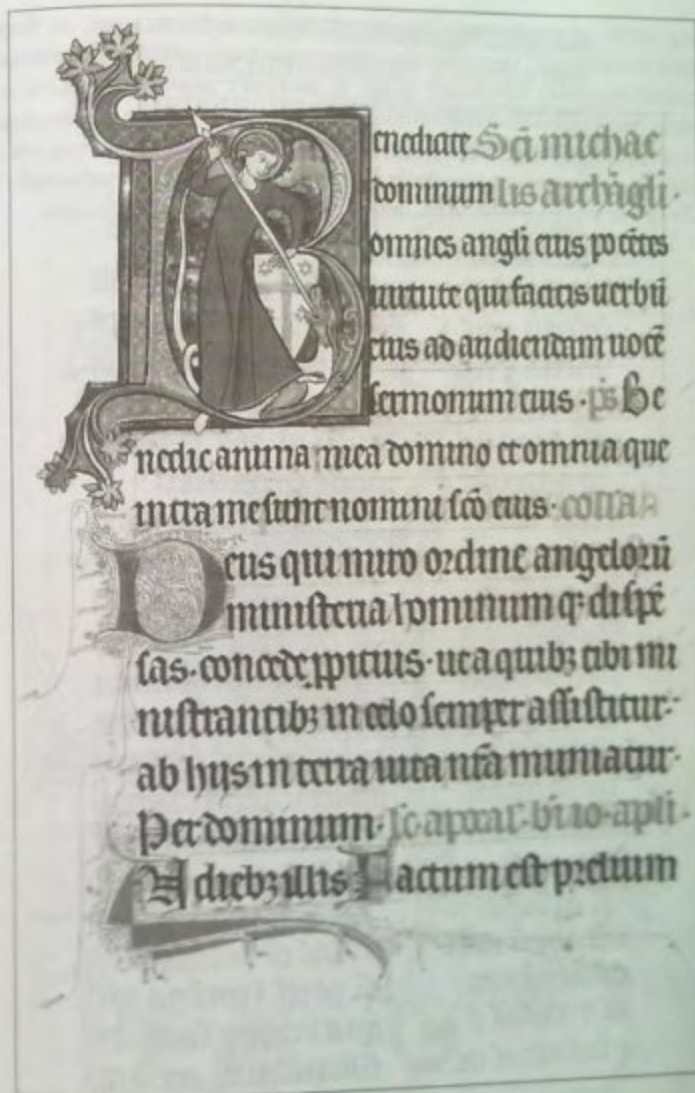 Benedicite Sc̄i michae
dominum lis archāgli·
omnes angli eius potētes
uirtute qui facitis uerbū
eius ad audiendam uocē
sermonum eius· ps̄ Be
nedic anima mea domino et omnia que
intra me sunt nomini sc̄o eius· colla
Deus qui miro ordine angelorū
ministeria hominum qꝫ dispē
sas· concede ꝓpicius· ut a quibꝫ tibi mi
nistrantibꝫ in celo semper assistitur·
ab hijs in terra uita nr̄a muniatur·
Per dominum· lc̄· apocal̄· bī io· apli·
In diebꝫ illis Factum est prelium